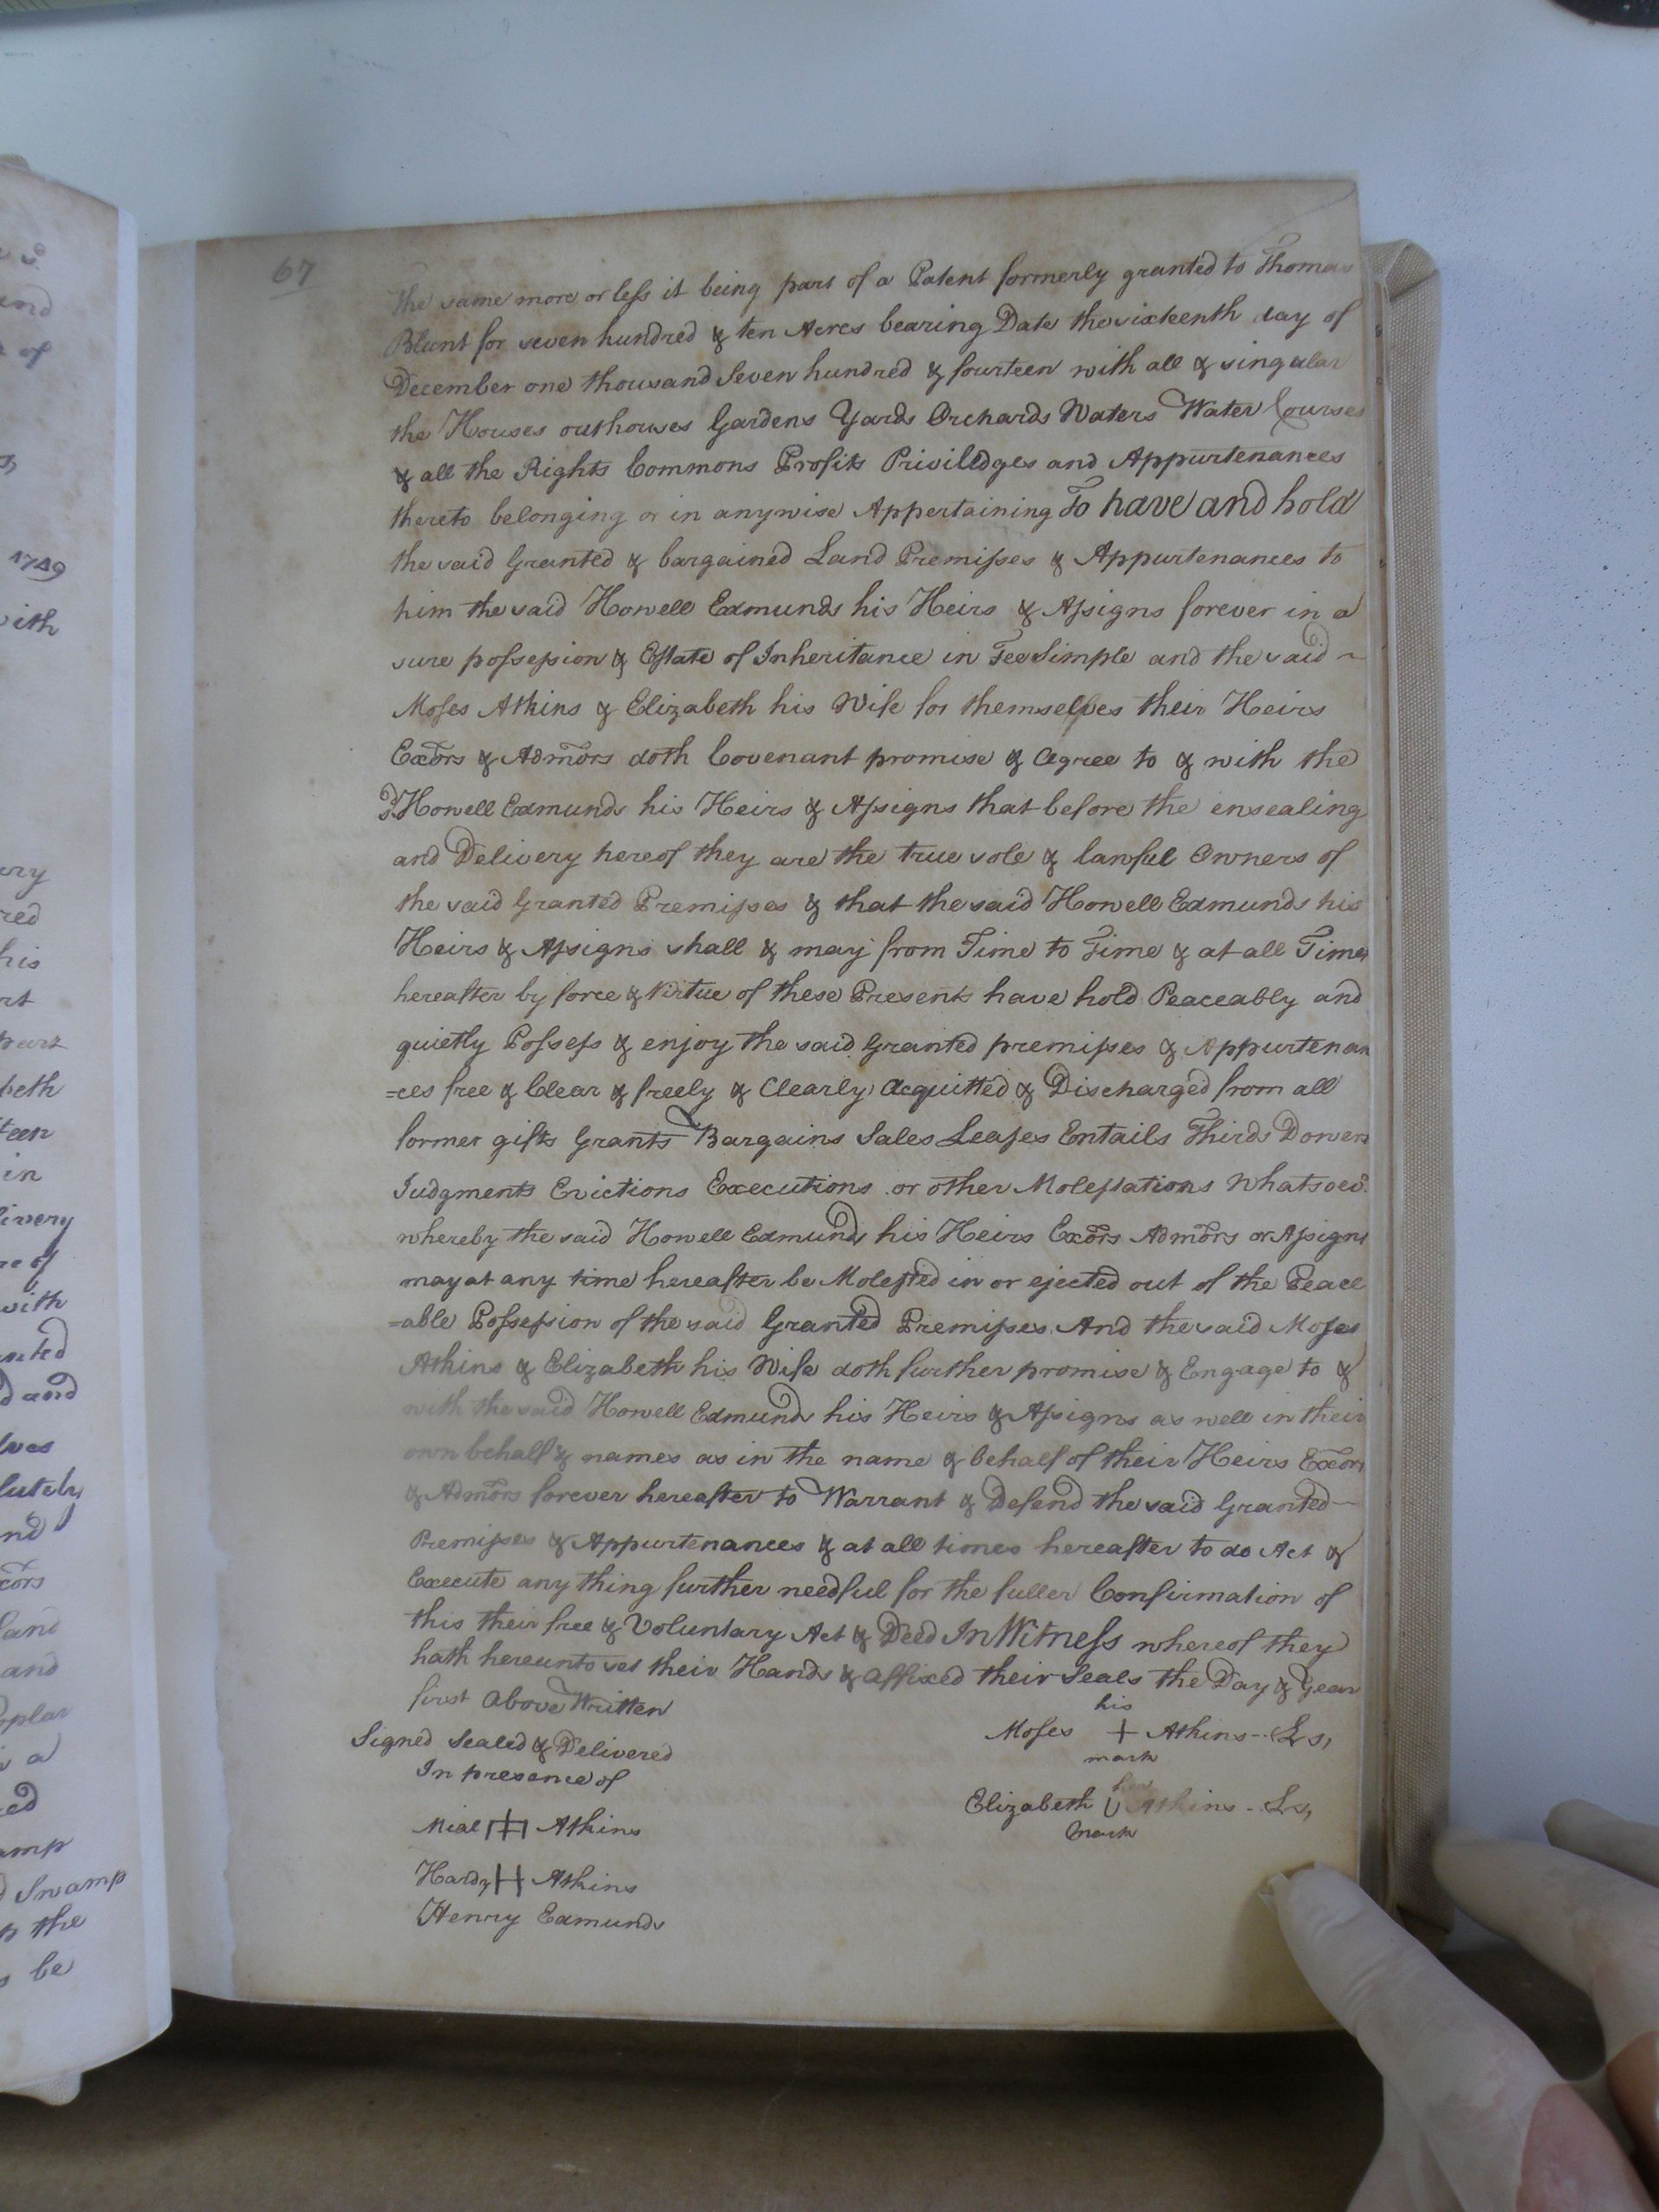 67
the same more or less it being part of a Patent formerly granted to Thomas
Blunt for seven hundred & ten Acres bearing Date the sixteenth day of
December one thousand Seven hundred & fourteen with all & singular
the Houses outhouses Gardens Yards Orchards Waters Water Courses
& all the Rights Commons Profits Priviledges and Appurtenances
thereto belonging or in anywise Appertaining To have and hold
the said Granted & bargained Land Premisses & Appurtenances to
him the said Howell Edmunds his Heirs & Assigns forever in a
sure possession & Estate of Inheritance in Fee Simple and the said ~
Moses Atkins & Elizabeth his Wife for themselves their Heirs
Exõrs & Admõrs doth Covenant promise & Agree to & with the
sd. Howell Edmunds his Heirs & Assigns that before the ensealing
and Delivery hereof they are the true sole & lawful Owners of
the said Granted Premisses & that the said Howell Edmunds his
Heirs & Assigns shall & may from Time to Time & at all Times
hereafter by force & Virtue of these Presents have hold Peaceably and
quietly Possess & enjoy the said Granted premisses & Appurtenan
=ces free & Clear & freely & Clearly Acquitted & Discharged from all
former gifts Grants Bargains Sales Leases Entails Thirds Dowers
Judgments Evictions Executions or other Molestations Whatsoer.
whereby the said Howell Edmunds his Heirs Exõrs Admõrs or Assigns
may at any time hereafter be Molested in or ejected out of the Peace
=able Possession of the said Granted Premisses And the said Moses
Atkins & Elizabeth his Wife doth further promise & Engage to &
with the said Howell Edmunds his Heirs & Assigns as well in their
own behalf & names as in the name & behalf of their Heirs Exõrs
& Admõrs forever hereafter to Warrant & Defend the said Granted
Premisses & Appurtenances & at all times hereafter to do Act &
Execute any thing further needful for the fuller Confirmation of
this their free & Voluntary Act & Deed In Witness whereof they
hath hereunto set their Hands & Affixed their Seals the Day & Year
first Above Written
his
Signed Sealed & Delivered
Moses + Atkins -- Ls,
In presence of
mark
her
Elizabeth U Atkins - Ls,
mark
Mial Atkins
Hardy H Atkins
Henry Edmunds
1749
with
of
his
beth
in
livery
with
and
Swamp
the
be